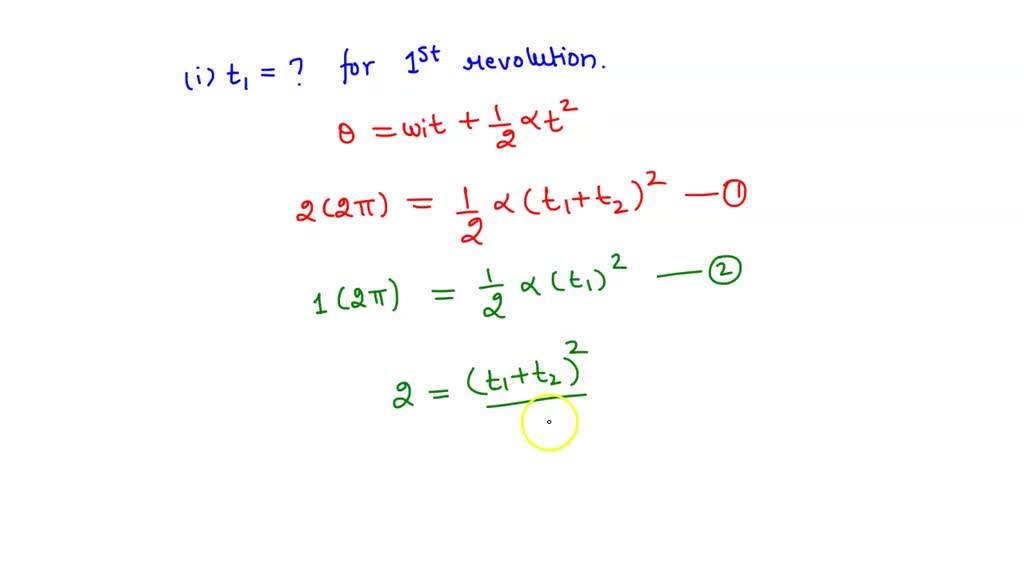 (i) t₁ = ? for 1st revolution.
θ = wit + 1/2 αt²
2(2π) = 1/2 α(t₁+t₂)² — ①
1(2π) = 1/2 α(t₁)² — ②
2 = (t₁+t₂)²